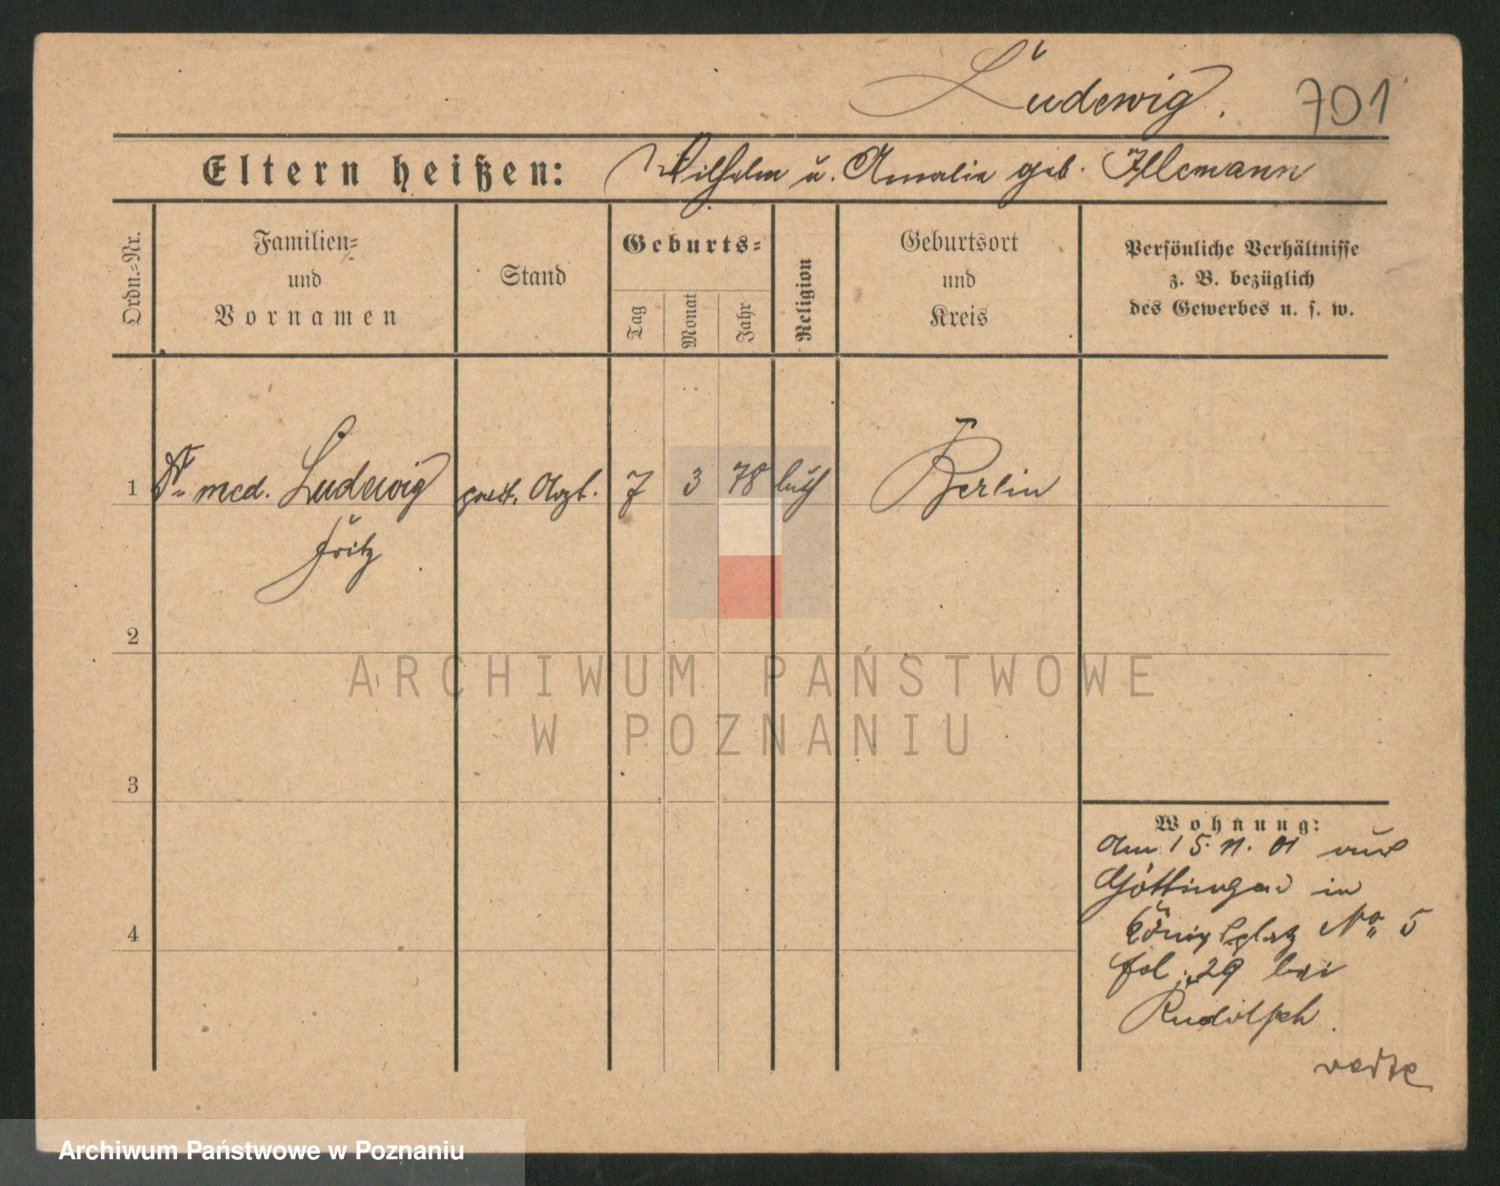 Ludewig. 701
Eltern heißen: Wilhelm u. Amalie geb. Illemann
Ordn.=Nr.
Familien=
und
Vornamen
Stand
Geburts=
Tag
Monat
Jahr
Religion
Geburtsort
und
Kreis
Persönliche Verhältnisse
z. B. bezüglich
des Gewerbes u. s. w.
1 Dr. med. Ludewig prakt. Arzt. 7 3 78 luth Berlin
Fritz
2
ARCHIWUM PAŃSTWOWE
W POZNANIU
3
Wohnung:
Am 15. 11. 01 aus
Göttingen in
Königsplatz No 5
fol. 29 bei
Rudolph.
4
Archiwum Państwowe w Poznaniu